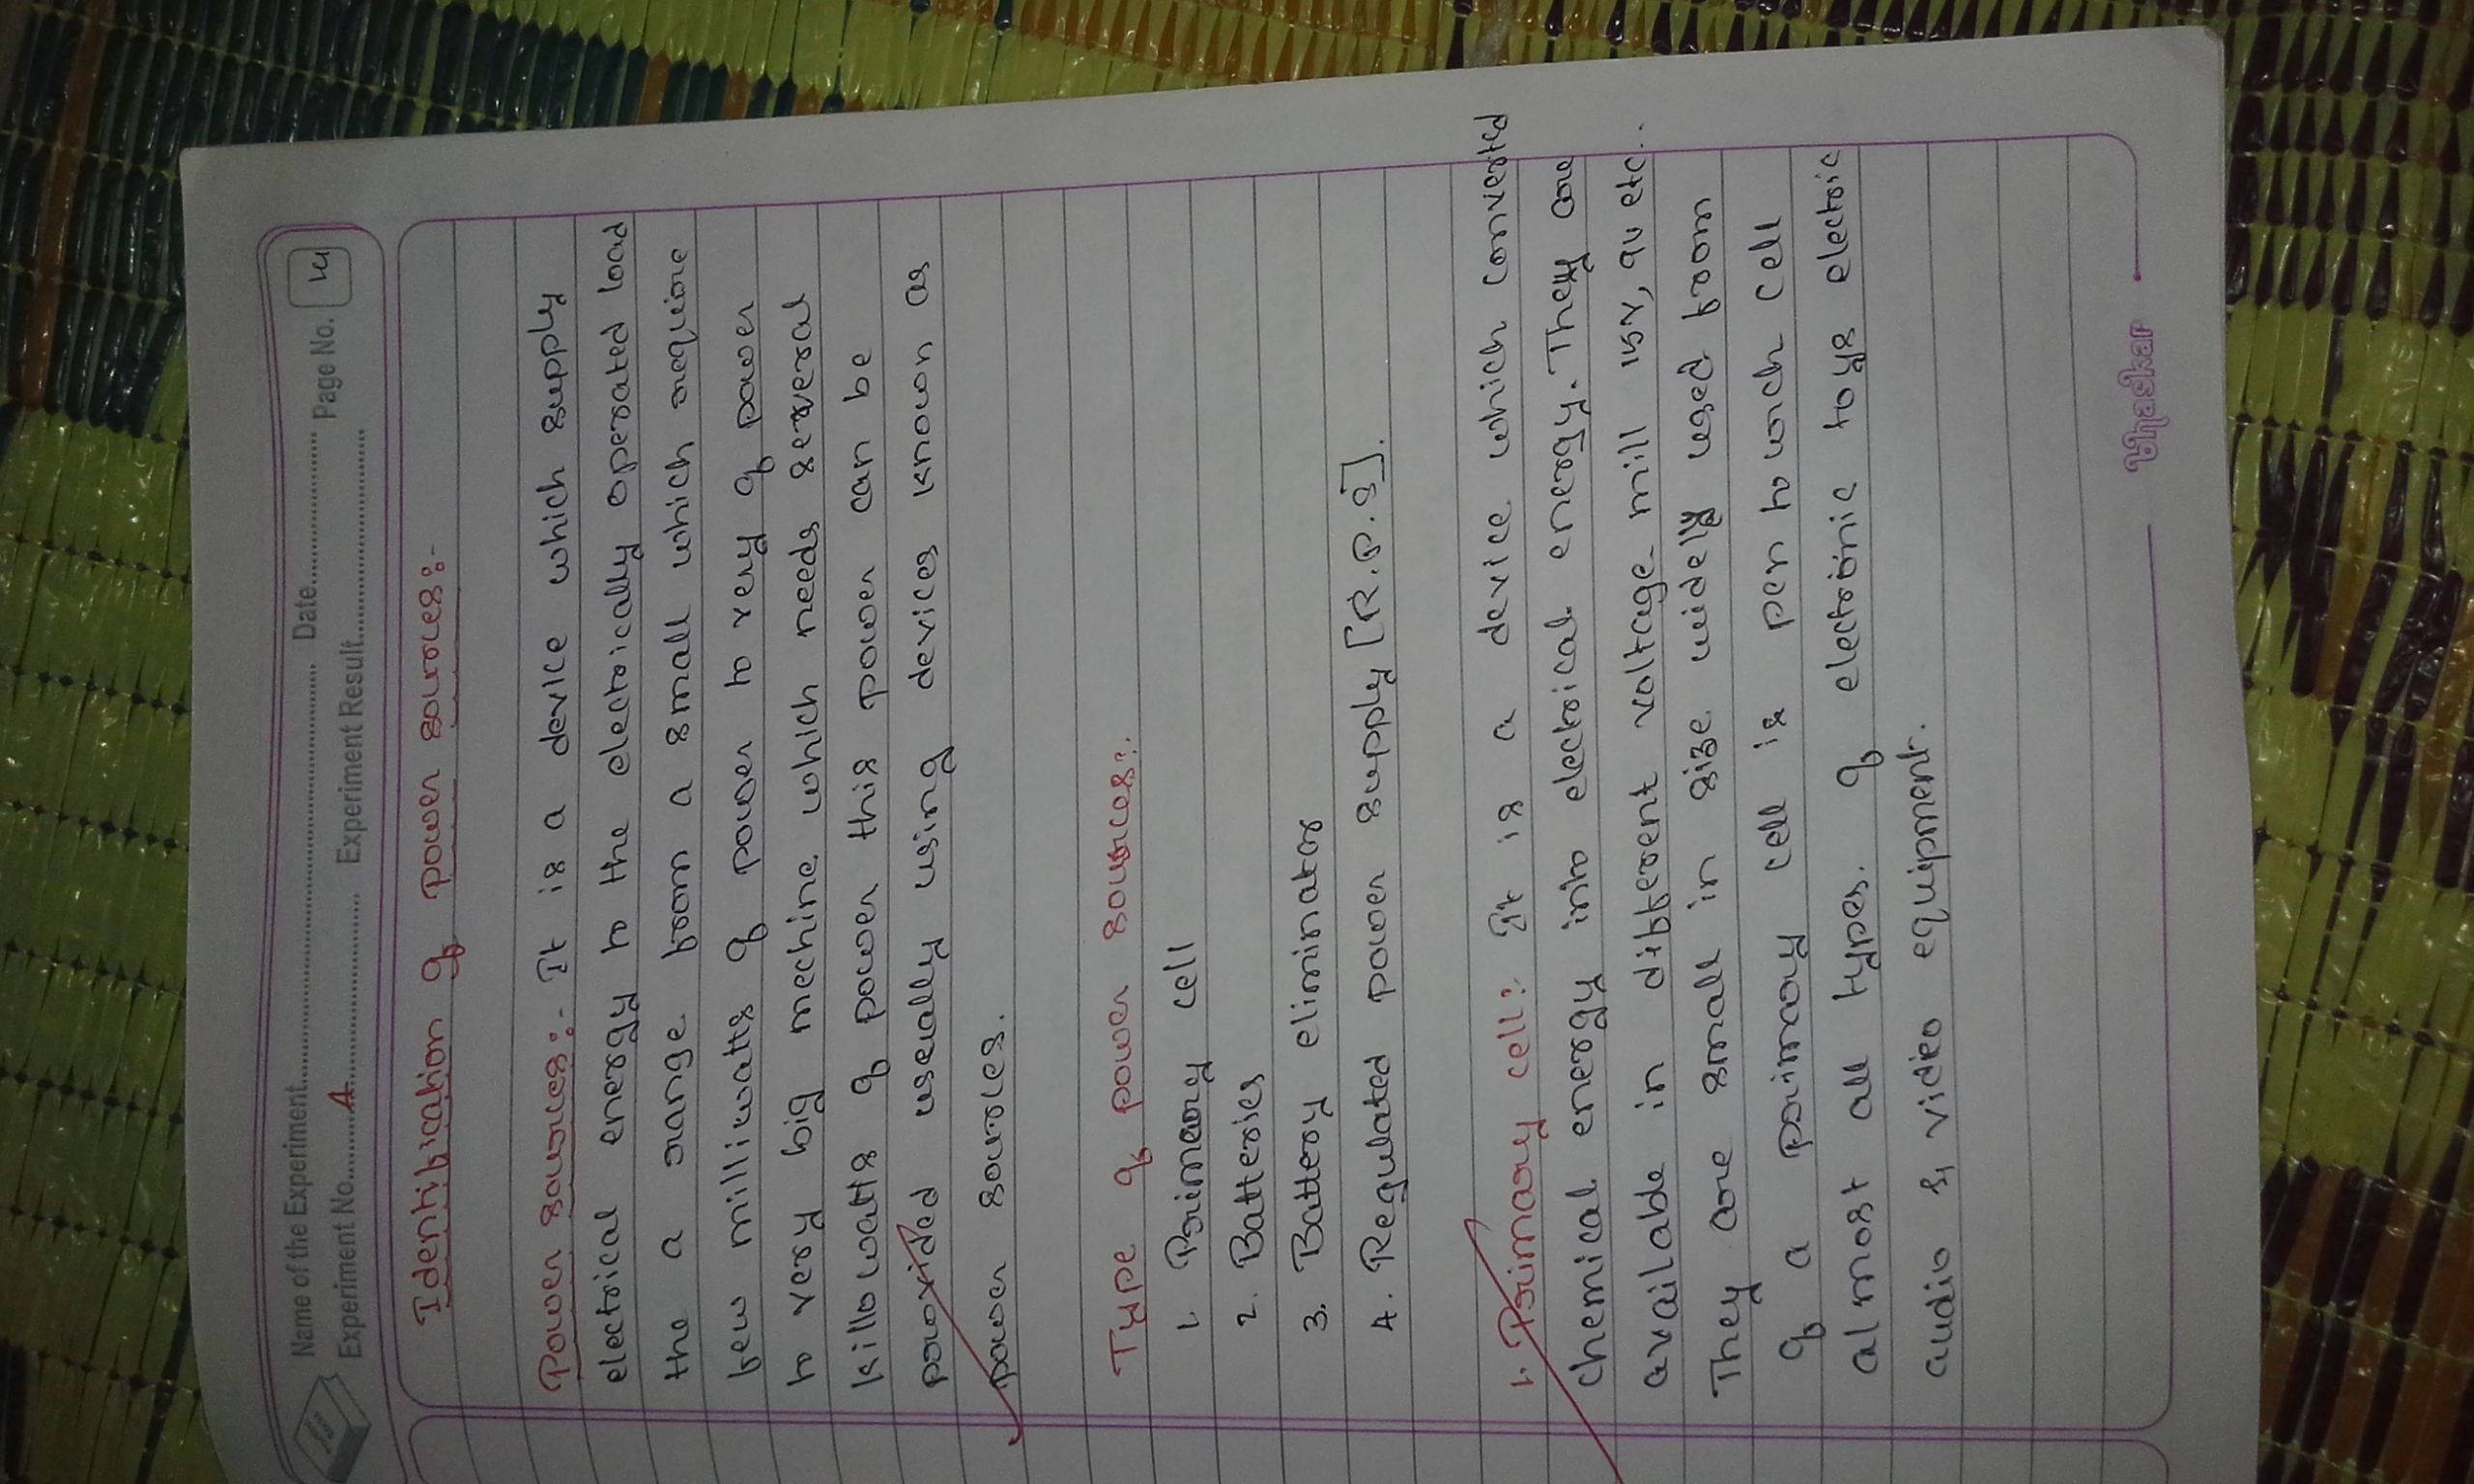 Name of the Experiment.......... Date.......... Page No.
Experiment No. 4 Experiment Result..........
Identification of power sources:-
Power sources:- It is a device which supply
electrical energy to the electrically operated load
the a range from a small which require
few milliwatts of power to very of power
to very big mechine which needs several
killowatts of power this power can be
provided useually using devices known as
power sources.
Type of power sources:.
1. Primeary cell
2. Batteries
3. Battery eliminator
4. Regulated power supply [R.P.S].
1. Primary cell: It is a device which converted
chemical energy into electrical energy. They are
available in different voltage mill 1.5v, 9v etc.
They are small in size widely used from
of a primary cell is pen to wrch cell
al most all types. of electronic toys electric
audio & video equipment.
bhaskar